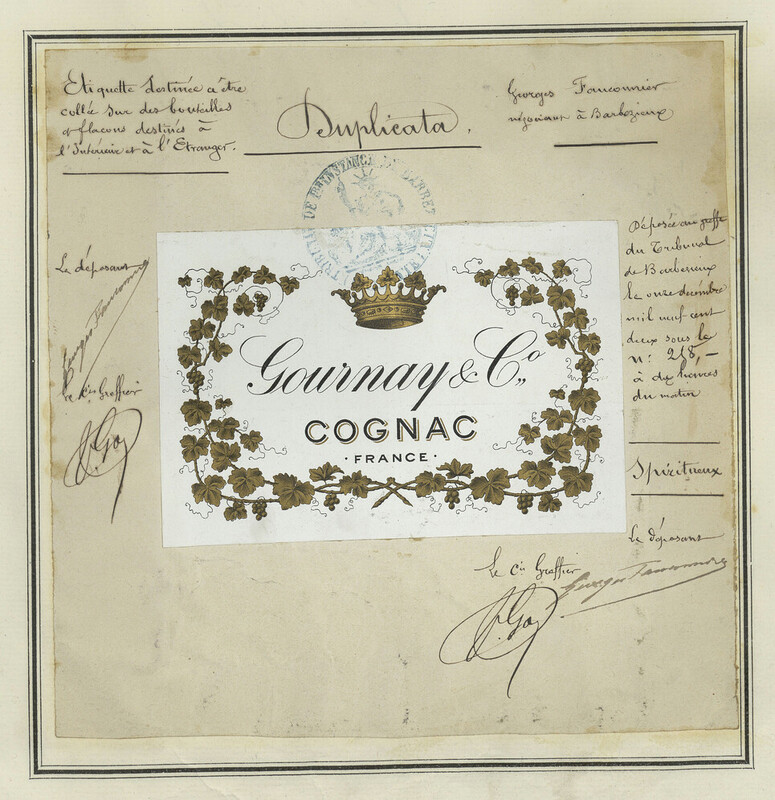 Etiquette destinée à être
collée sur des bouteilles
et flacons destinés à
l'Intérieur et à l'Etranger.
Duplicata.
Georges Fauconnier
négociant à Barbezieux
TRIBUNAL DE 1ère INSTANCE DE BARBEZIEUX
Le déposant
Georges Fauconnier
Le Cis Greffier
Gournay & Co
COGNAC
· FRANCE ·
Déposée au greffe
du Tribunal
de Barbezieux
le onze décembre
mil neuf cent
deux sous le
No 218, –
à dix heures
du matin
Spiritueux
Le déposant
Georges Fauconnier
Le Cis Greffier